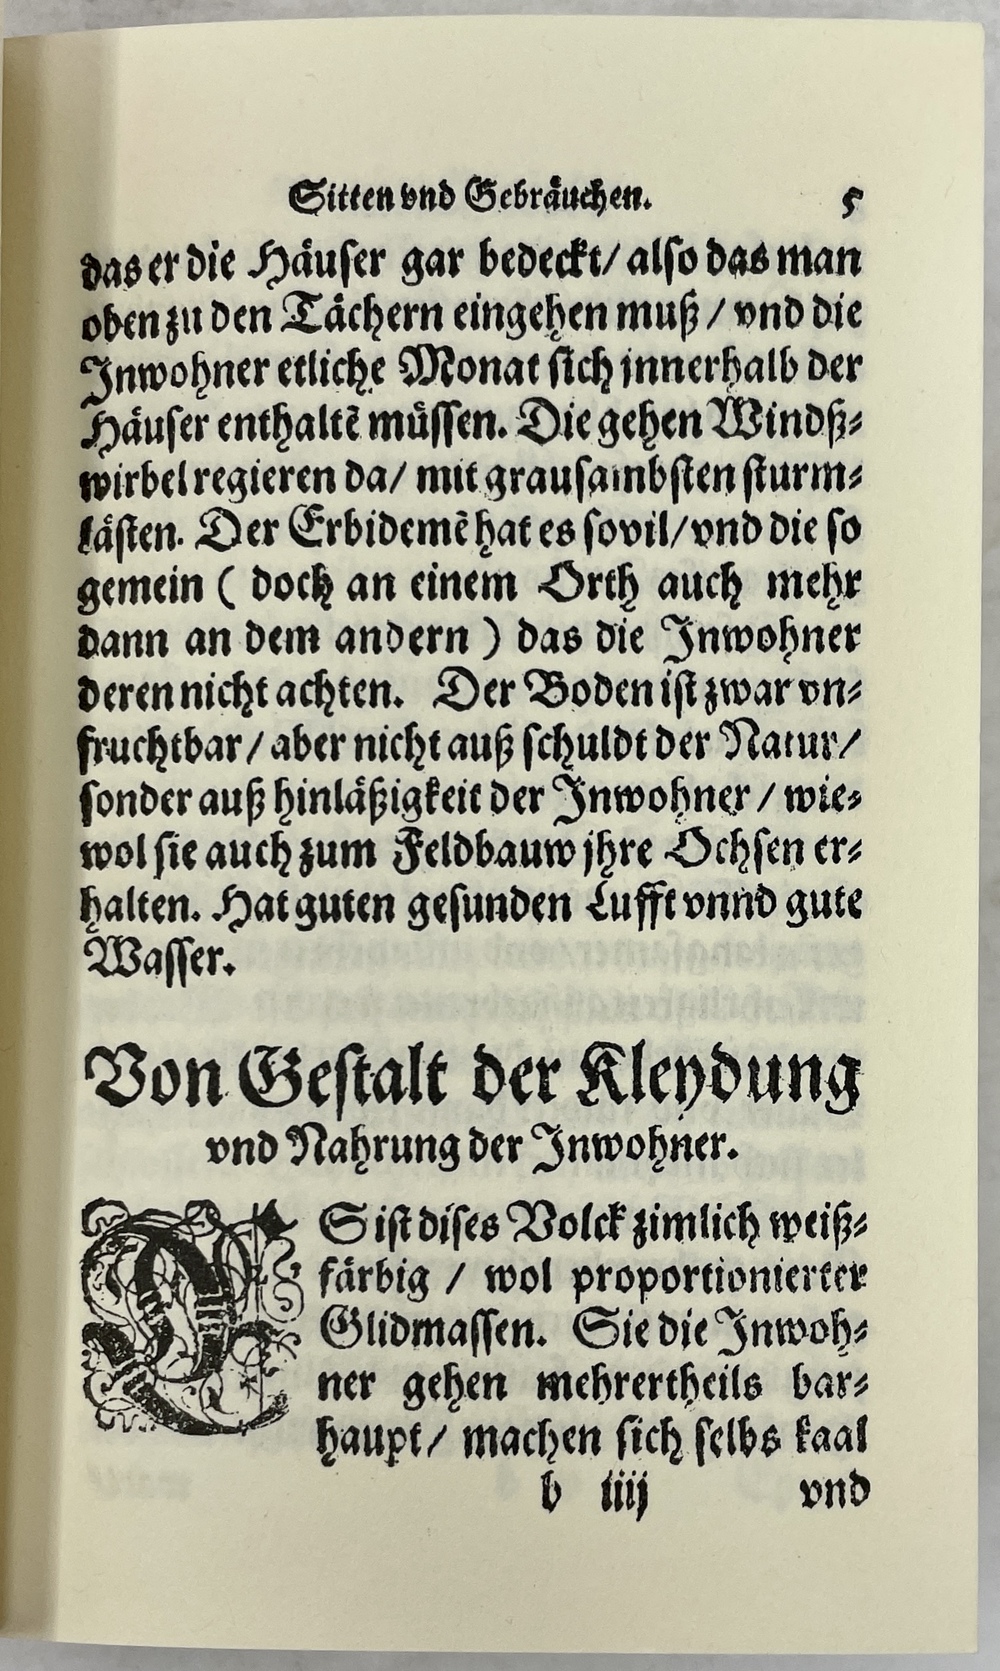 Sitten vnd Gebräuchen. 5
das er die Häuser gar bedeckt/ also das man
oben zu den Tächern eingehen muß / vnd die
Inwohner etliche Monat sich innerhalb der
Häuser enthaltẽ müssen. Die gehen Windß⸗
wirbel regieren da/ mit grausambsten sturm⸗
lästen. Der Erbidemẽ hat es sovil/ vnd die so
gemein ( doch an einem Orth auch mehr
dann an dem andern ) das die Inwohner
deren nicht achten. Der Boden ist zwar vn⸗
fruchtbar / aber nicht auß schuldt der Natur/
sonder auß hinläßigkeit der Inwohner / wie⸗
wol sie auch zum Feldbauw jhre Ochsen er⸗
halten. Hat guten gesunden Lufft vnnd gute
Wasser.
Von Gestalt der Kleydung
vnd Nahrung der Inwohner.
ES ist dises Volck zimlich weiß⸗
färbig / wol proportionierter
Glidmassen. Sie die Inwoh⸗
ner gehen mehrertheils bar⸗
haupt/ machen sich selbs kaal
b iiij vnd